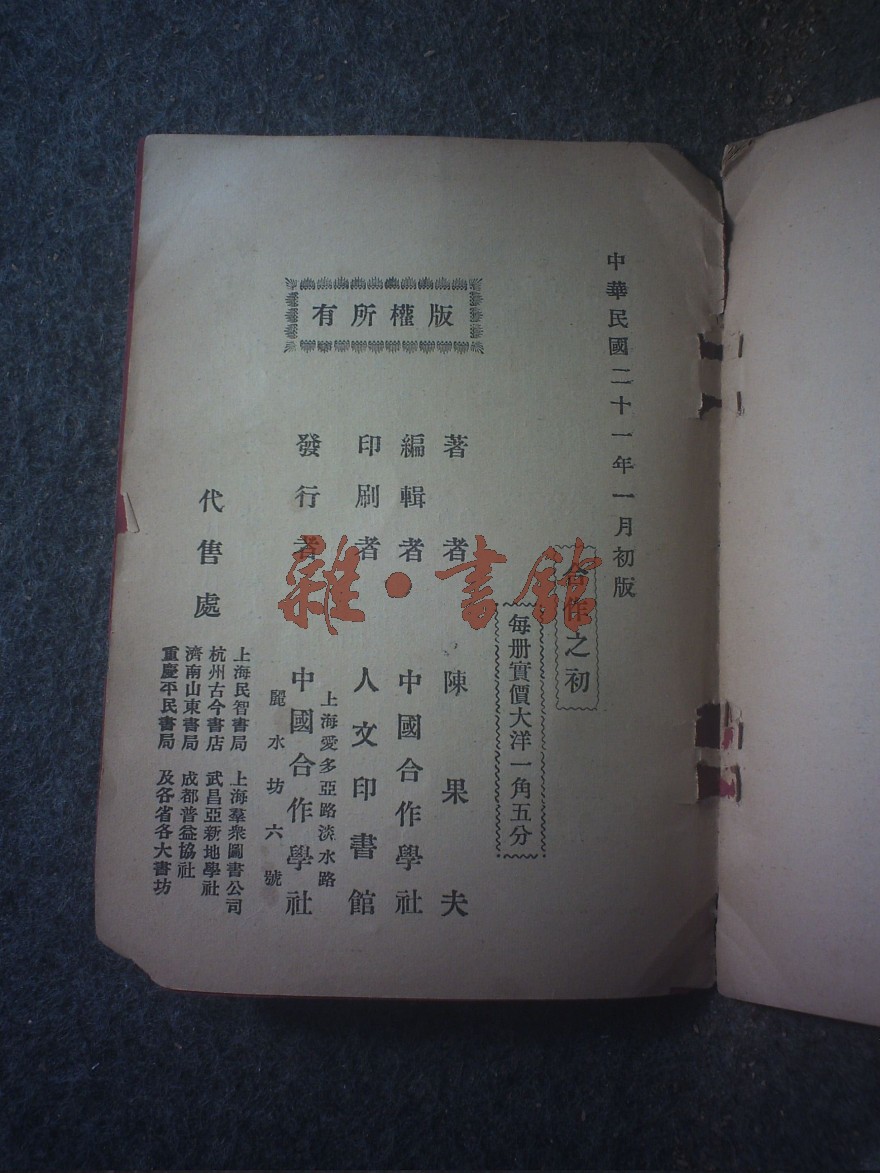 中華民國二十一年一月初版
合作之初
每册實價大洋一角五分
版權所有
著者 陳果夫
編輯者 中國合作學社
印刷者 人文印書館
上海愛多亞路淡水路
發行者 中國合作學社
麗水坊六號
代售處
上海民智書局 上海羣衆圖書公司
杭州古今書店 武昌亞新地學社
濟南山東書局 成都普益協社
重慶平民書局 及各省各大書坊
雜·書館